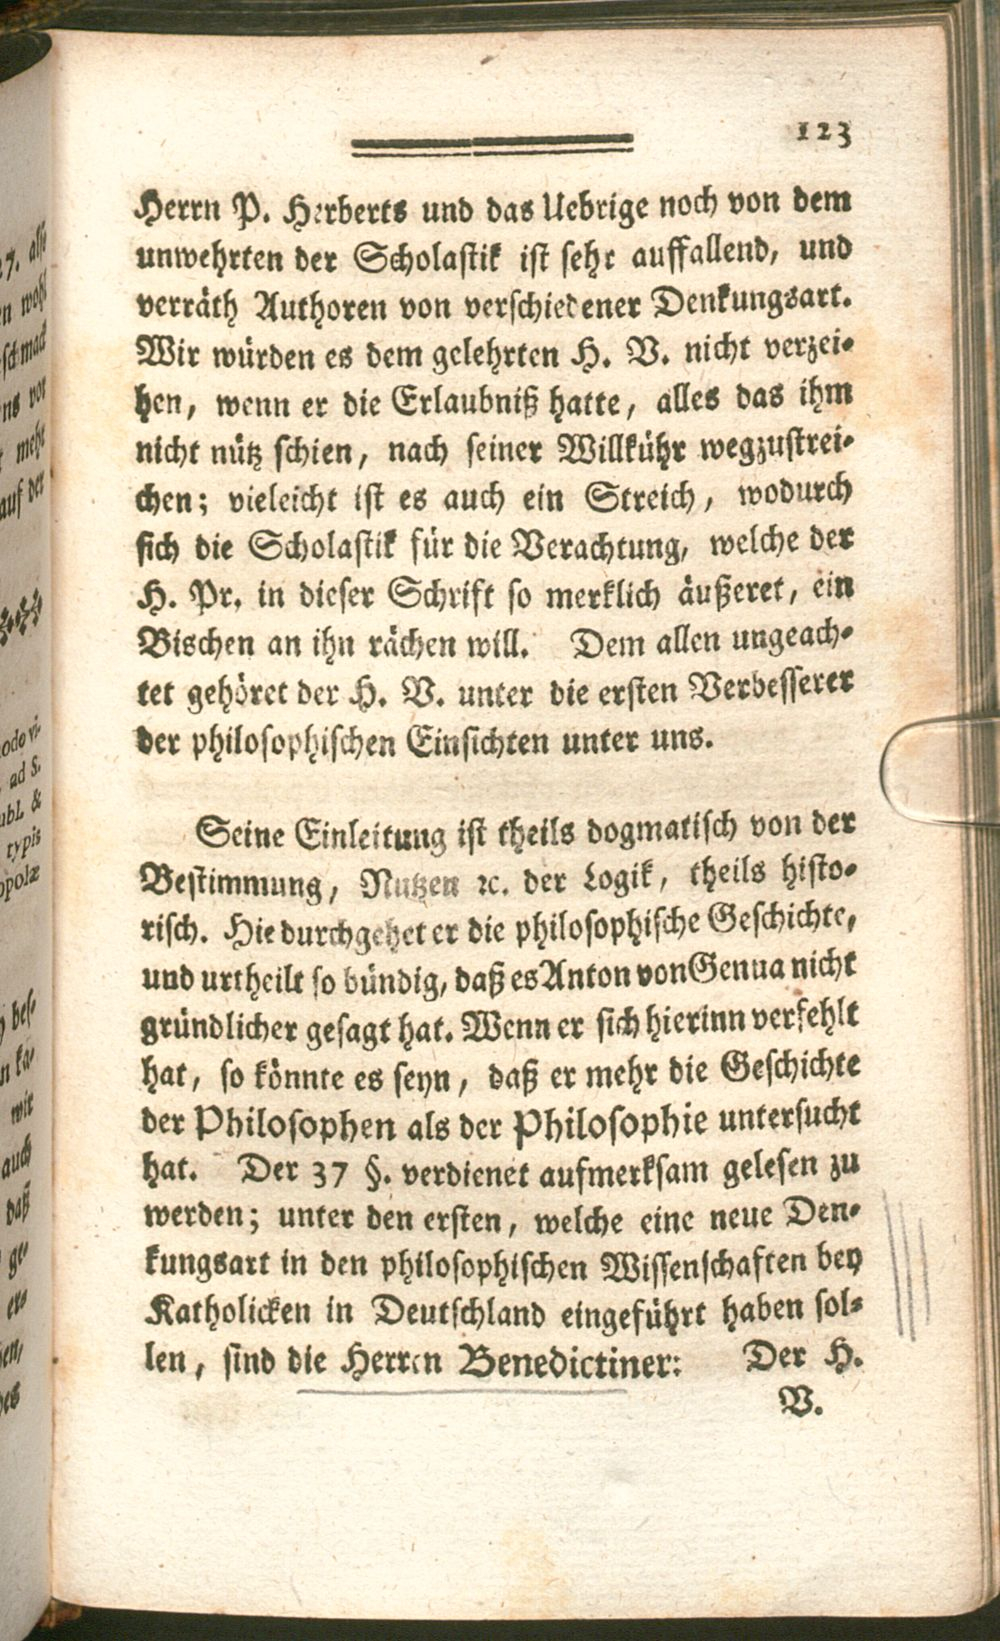 123
Herrn P. Herberts und das Uebrige noch von dem
unwehrten der Scholastik ist sehr auffallend, und
verräth Authoren von verschiedener Denkungsart.
Wir würden es dem gelehrten H. V. nicht verzei-
hen, wenn er die Erlaubniß hatte, alles das ihm
nicht nütz schien, nach seiner Willkühr wegzustrei-
chen; vieleicht ist es auch ein Streich, wodurch
sich die Scholastik für die Verachtung, welche der
H. Pr. in dieser Schrift so merklich äußeret, ein
Bischen an ihn rächen will. Dem allen ungeach-
tet gehöret der H. V. unter die ersten Verbesserer
der philosophischen Einsichten unter uns.
Seine Einleitung ist theils dogmatisch von der
Bestimmung, Nutzen ꝛc. der Logik, theils histo-
risch. Hie durchgehet er die philosophische Geschichte,
und urtheilt so bündig, daß es Anton von Genua nicht
gründlicher gesagt hat. Wenn er sich hierinn verfehlt
hat, so könnte es seyn, daß er mehr die Geschichte
der Philosophen als der Philosophie untersucht
hat. Der 37 §. verdienet aufmerksam gelesen zu
werden; unter den ersten, welche eine neue Den-
kungsart in den philosophischen Wissenschaften bey
Katholicken in Deutschland eingeführt haben sol-
len, sind die Herren Benedictiner: Der H.
V.